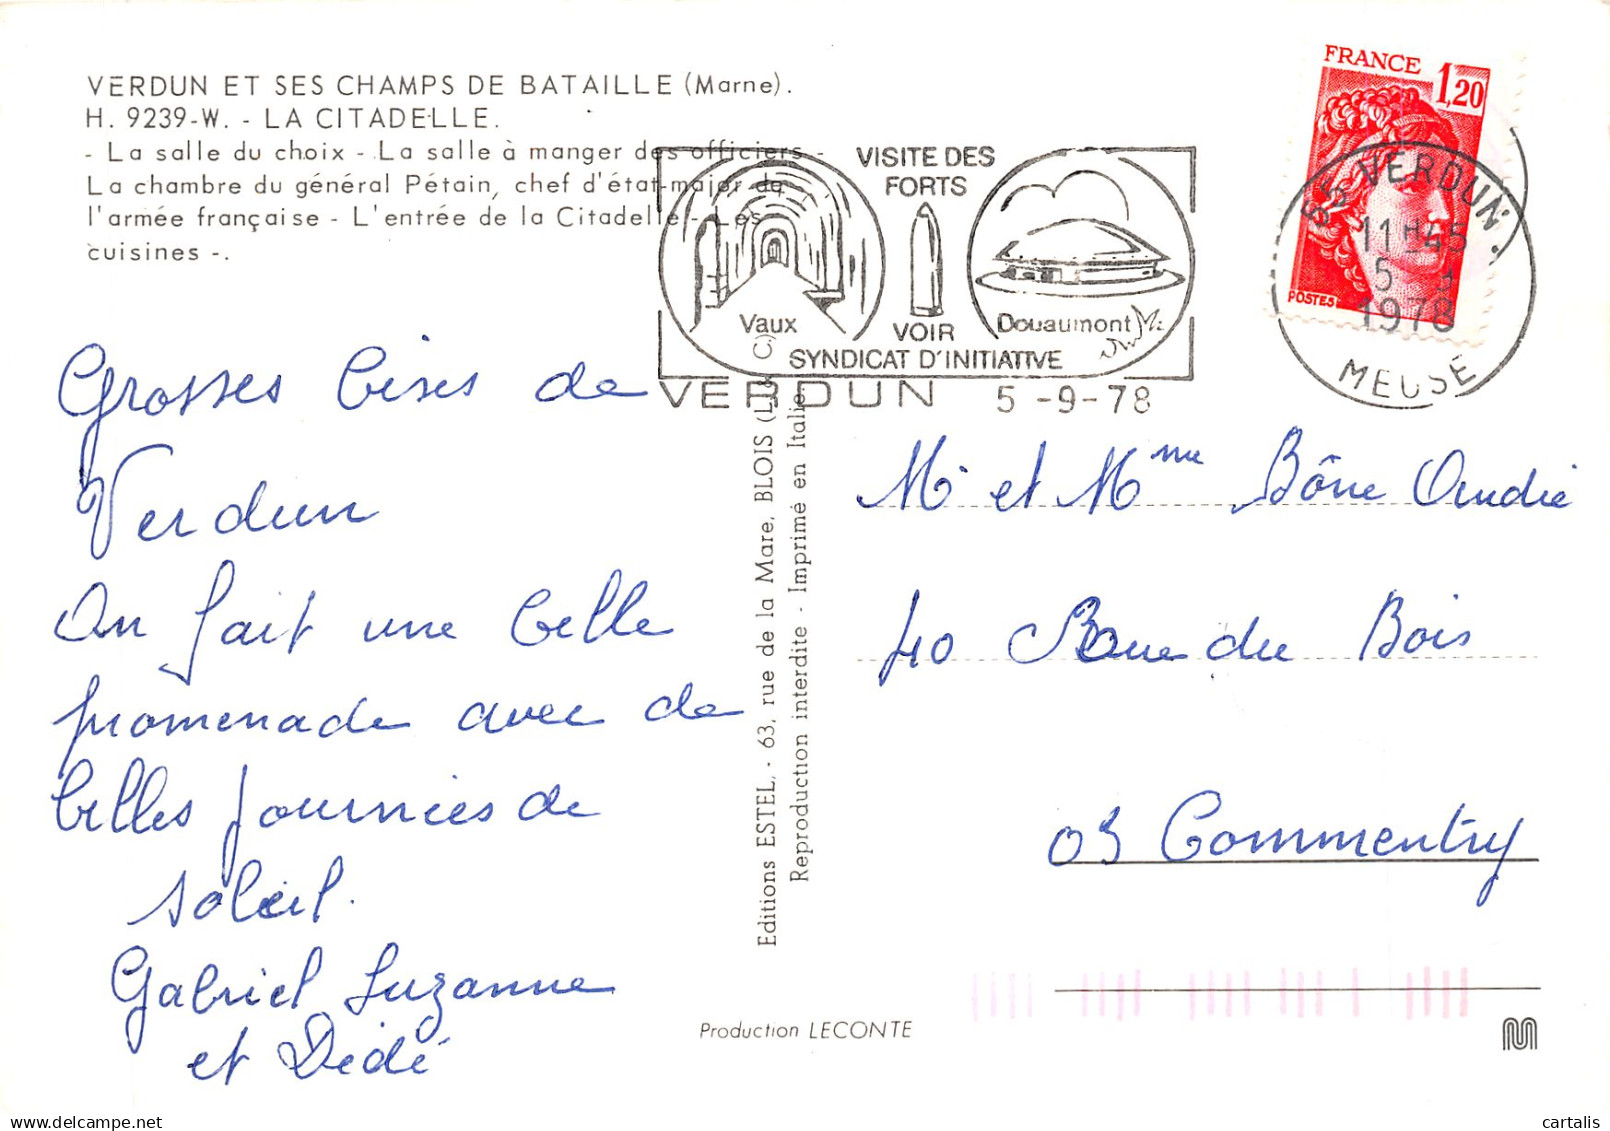 VERDUN ET SES CHAMPS DE BATAILLE (Marne).
H. 9239-W. - LA CITADELLE.
- La salle du choix - La salle à manger des officiers -
La chambre du général Pétain, chef d'état-major de
l'armée française - L'entrée de la Citadelle - Les
cuisines -.
VISITE DES
FORTS
Vaux
VOIR
Douaumont
SYNDICAT D'INITIATIVE
VERDUN 5-9-78
FRANCE
1,20
POSTES
55 VERDUN
11H45
5 - 9
1978
MEUSE
Grosses bises de
Verdun
On fait une belle
promenade avec de
belles journées de
soleil.
Gabriel Suzanne
et Dédé
Editions ESTEL, - 63, rue de la Mare, BLOIS (L.-et-C.)
Reproduction interdite - Imprimé en Italie
Mr et Mme Bône
40 Rue du Bois
03 Commentry
Production LECONTE
delcampe.net
cartalis